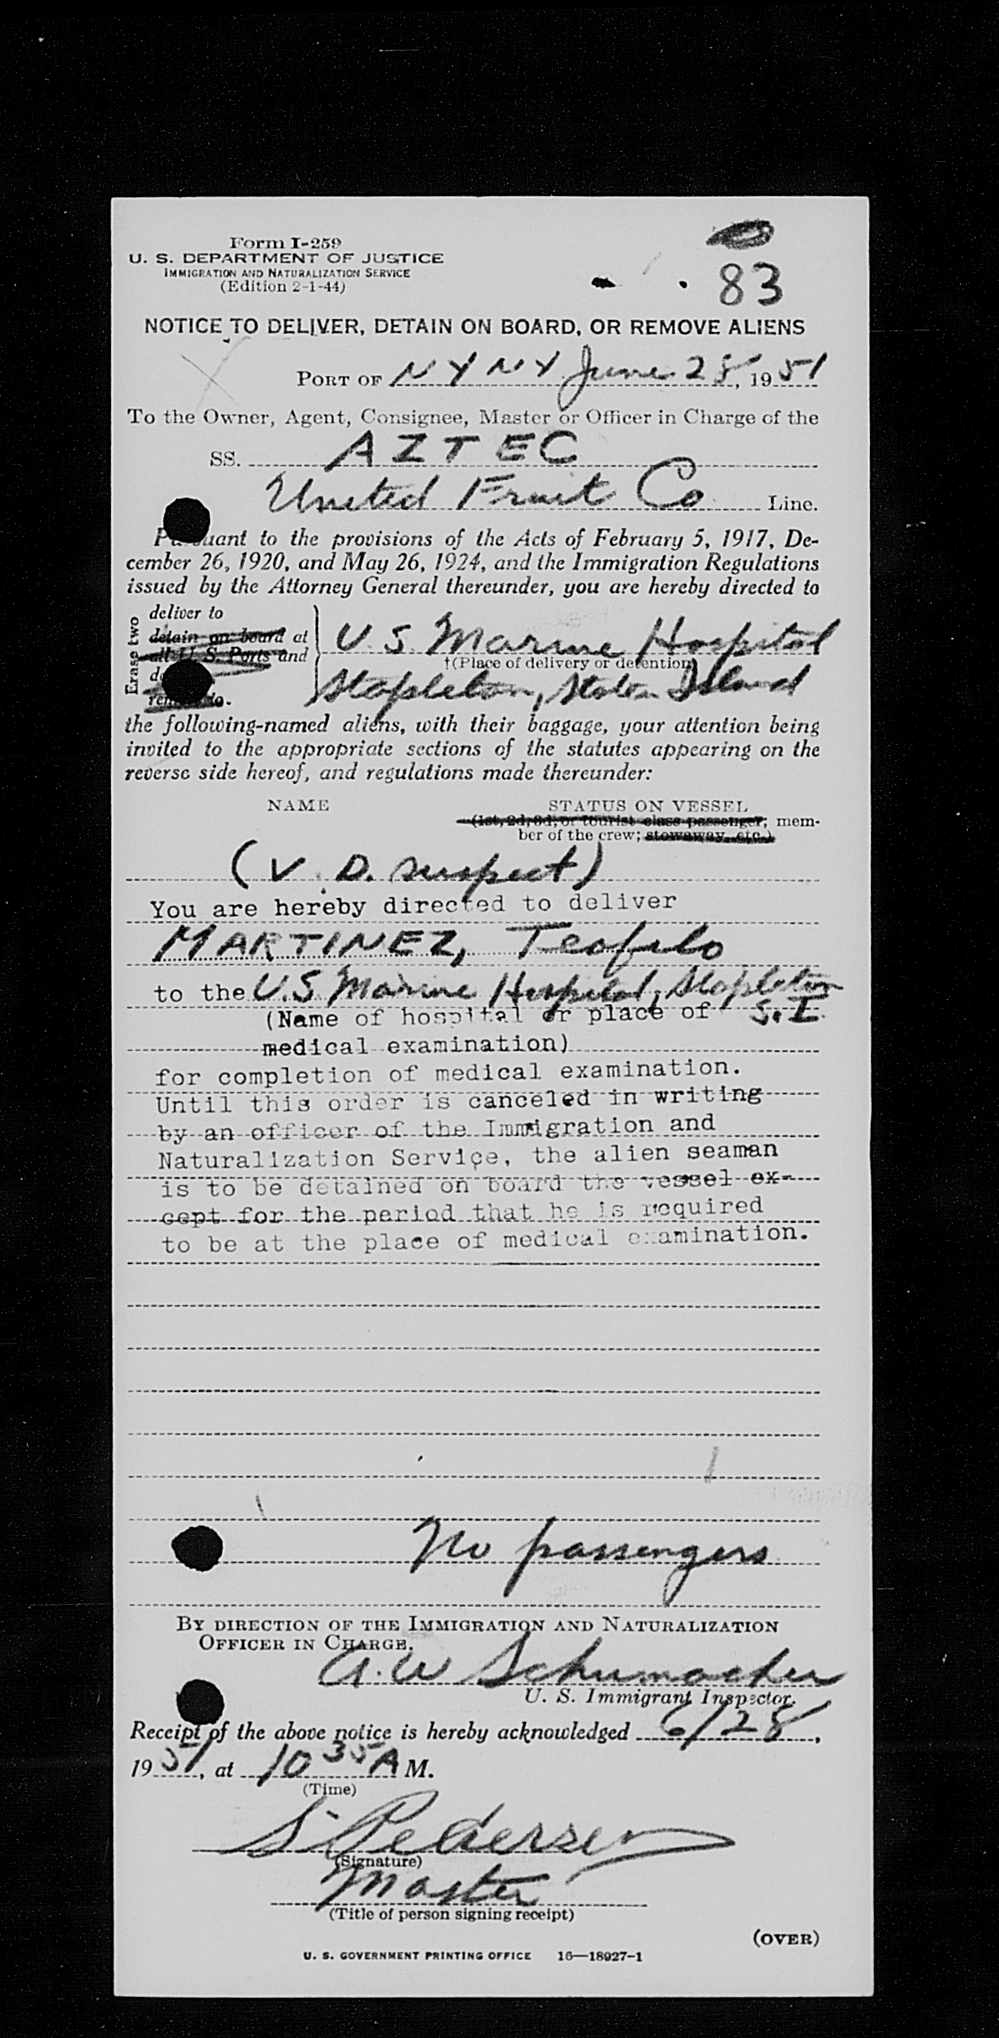 Form I-259
U. S. DEPARTMENT OF JUSTICE
IMMIGRATION AND NATURALIZATION SERVICE
(Edition 2-1-44)
83
NOTICE TO DELIVER, DETAIN ON BOARD, OR REMOVE ALIENS
PORT OF NY NY June 28, 1951
To the Owner, Agent, Consignee, Master or Officer in Charge of the
SS. AZTEC
United Fruit Co Line.
Pursuant to the provisions of the Acts of February 5, 1917, De-
cember 26, 1920, and May 26, 1924, and the Immigration Regulations
issued by the Attorney General thereunder, you are hereby directed to
Erase two
deliver to
detain on board at
all U. S. Ports and
U. S. Marine Hospital
†(Place of delivery or detention)
Stapleton, Staten Island
the following-named aliens, with their baggage, your attention being
invited to the appropriate sections of the statutes appearing on the
reverse side hereof, and regulations made thereunder:
NAME STATUS ON VESSEL
(1st, 2d, 3d, or tourist class passenger; mem-
ber of the crew; stowaway, etc.)
(V. D. suspect)
You are hereby directed to deliver
MARTINEZ, Teofilo
to the U.S. Marine Hospital, Stapleton
S.I.
(Name of hospital or place of
medical examination)
for completion of medical examination.
Until this order is canceled in writing
by an officer of the Immigration and
Naturalization Service, the alien seaman
is to be detained on board the vessel ex-
cept for the period that he is required
to be at the place of medical examination.
No passengers
BY DIRECTION OF THE IMMIGRATION AND NATURALIZATION
OFFICER IN CHARGE.
A. W Schumacher
U. S. Immigrant Inspector.
Receipt of the above notice is hereby acknowledged 6/28,
1951, at 10 35 A M.
(Time)
S. Pedersen
(Signature)
Master
(Title of person signing receipt)
(OVER)
U. S. GOVERNMENT PRINTING OFFICE 16—18927-1